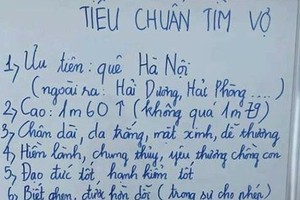 TIÊU CHUẨN TÌM VỢ
1, Ưu tiên: quê Hà Nội
(ngoài ra: Hải Dương, Hải Phòng ....)
2, Cao: 1m 60 ↑ (không quá 1m79)
3, Chân dài, da trắng, mặt xinh, dễ thương
4, Hiền lành, chung thủy, yêu thương chồng con
5, Đạo đức tốt, hạnh kiểm tốt
6, Biết ghen, được hờn dỗi (trong sự cho phép)